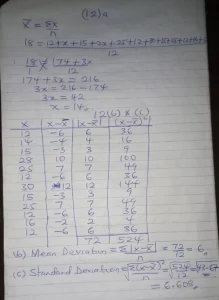 (12)a
x̄ = Σx/n
18 = 12+x+15+2x+25+
12
18 = 174+3x
1 12
174+3x = 216
3x = 216-174
3x = 42
x = 14
12(b) & (c)
x x-x̄ |x-x̄| (x-x̄)²
12 -6 6 36
14 -4 4 16
15 -3 3 9
28 10 10 100
25 7 7 49
12 -6 6 36
30 12 12 144
15 -3 3 9
25 7 7 49
16 -2 2 4
12 -6 6 36
72 524
(b) Mean Deviation = Σ|x-x̄|/n = 72/12 = 6
(c) Standard Deviation = √Σ(x-x̄)²/n = √524/12
= 6.608